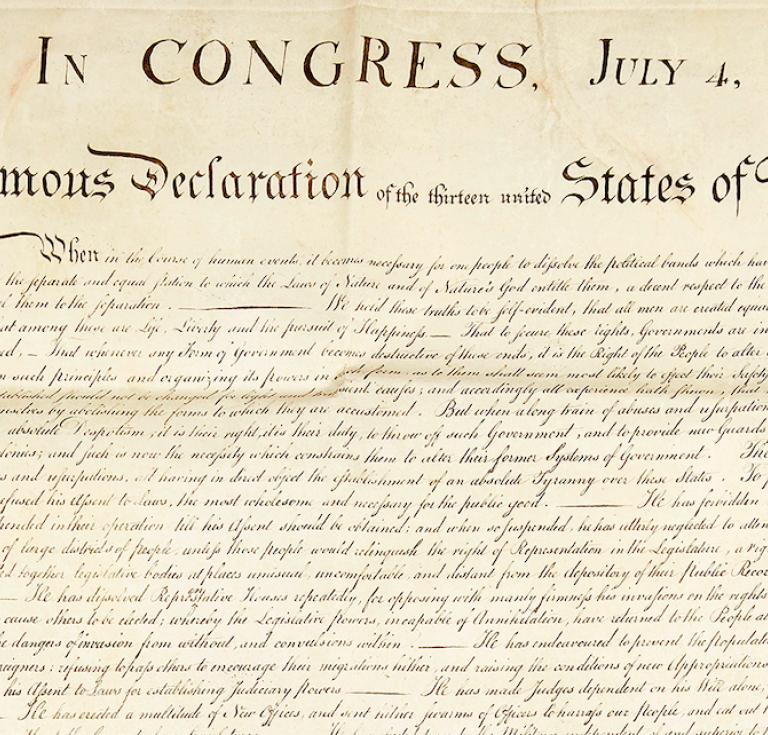 IN CONGRESS, JULY 4,
mous Declaration of the thirteen united States of
When in the Course of human events, it becomes necessary for one people to dissolve the political bands which hav
the separate and equal station to which the Laws of Nature and of Nature's God entitle them, a decent respect to the
l them to the separation. ——— We hold these truths to be self-evident, that all men are created equa
at among these are Life, Liberty and the pursuit of Happiness. — That to secure these rights, Governments are in
ed, — That whenever any Form of Government becomes destructive of these ends, it is the Right of the People to alter
n such principles and organizing its powers in such form, as to them shall seem most likely to effect their Safety
tablished should not be changed for light and transient causes; and accordingly all experience hath shewn, that
mselves by abolishing the forms to which they are accustomed. But when a long train of abuses and usurpation
absolute Despotism, it is their right, it is their duty, to throw off such Government, and to provide new Guards
lonies; and such is now the necessity which constrains them to alter their former Systems of Government. The
s and usurpations, all having in direct object the establishment of an absolute Tyranny over these States. To p
efused his Assent to Laws, the most wholesome and necessary for the public good. ——— He has forbidden
pended in their operation till his Assent should be obtained; and when so suspended, he has utterly neglected to atten
of large districts of people, unless those people would relinquish the right of Representation in the Legislature, a rig
ed together legislative bodies at places unusual, uncomfortable, and distant from the depository of their Public Recor
— He has dissolved Representative Houses repeatedly, for opposing with manly firmness his invasions on the rights
cause others to be elected; whereby the Legislative powers, incapable of Annihilation, have returned to the People at
e dangers of invasion from without, and convulsions within. ——— He has endeavoured to prevent the populatio
reigners; refusing to pass others to encourage their migrations hither, and raising the conditions of new Appropriations
his Assent to Laws for establishing Judiciary powers ——— He has made Judges dependent on his Will alone,
— He has erected a multitude of New Offices, and sent hither swarms of Officers to harrass our People, and eat out t